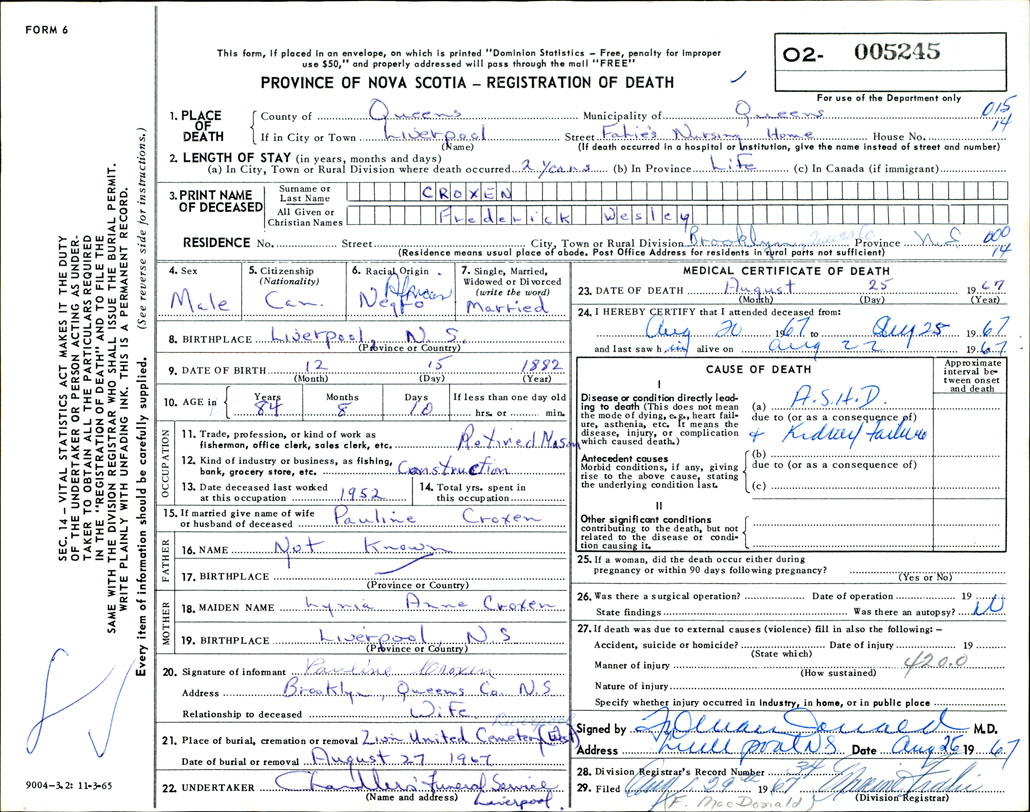 FORM 6
This form, if placed in an envelope, on which is printed "Dominion Statistics – Free, penalty for improper
use $50," and properly addressed will pass through the mail "FREE"
PROVINCE OF NOVA SCOTIA – REGISTRATION OF DEATH
O2- 005245
For use of the Department only
015
14
1. PLACE OF DEATH
County of Queens Municipality of Queens
If in City or Town Liverpool Street Fatie's Nursing Home House No.
(Name) (If death occurred in a hospital or institution, give the name instead of street and number)
2. LENGTH OF STAY (in years, months and days)
(a) In City, Town or Rural Division where death occurred 2 years (b) In Province Life (c) In Canada (if immigrant)
3. PRINT NAME OF DECEASED
Surname or Last Name CROXEN
All Given or Christian Names Frederick Wesley
RESIDENCE No. Street City, Town or Rural Division Brooklyn, Queens Co Province N.S
000
14
(Residence means usual place of abode. Post Office Address for residents in rural parts not sufficient)
4. Sex
Male
5. Citizenship
(Nationality)
Can.
6. Racial Origin
African
Negro
7. Single, Married,
Widowed or Divorced
(write the word)
Married
8. BIRTHPLACE Liverpool, N.S.
(Province or Country)
9. DATE OF BIRTH 12 15 1882
(Month) (Day) (Year)
10. AGE in
Years
84
Months
8
Days
10
If less than one day old
hrs. or min.
OCCUPATION
11. Trade, profession, or kind of work as
fisherman, office clerk, sales clerk, etc. Retired Mason
12. Kind of industry or business, as fishing,
bank, grocery store, etc. Construction
13. Date deceased last worked
at this occupation 1952
14. Total yrs. spent in
this occupation
15. If married give name of wife
or husband of deceased Pauline Croxen
FATHER
16. NAME Not Known
17. BIRTHPLACE
(Province or Country)
MOTHER
18. MAIDEN NAME Lynia Anne Croxen
19. BIRTHPLACE Liverpool, N S
(Province or Country)
20. Signature of informant Pauline Croxen
Address Brooklyn, Queens Co. N.S
Relationship to deceased Wife
Liverpool
21. Place of burial, cremation or removal Zion United Cemetery (West)
Date of burial or removal August 27 1967
22. UNDERTAKER Chandlers Funeral Service
(Name and address) Liverpool
MEDICAL CERTIFICATE OF DEATH
23. DATE OF DEATH August 25 1967
(Month) (Day) (Year)
24. I HEREBY CERTIFY that I attended deceased from:
Aug 20 1967 to Aug 25 1967
and last saw him alive on Aug 22 1967
CAUSE OF DEATH
Approximate
interval be-
tween onset
and death
I
Disease or condition directly lead-
ing to death (This does not mean
the mode of dying, e.g., heart fail-
ure, asthenia, etc. It means the
disease, injury, or complication
which caused death.)
(a) A.S.H.D.
due to (or as a consequence of)
+ Kidney failure
Antecedent causes
Morbid conditions, if any, giving
rise to the above cause, stating
the underlying condition last.
(b)
due to (or as a consequence of)
(c)
II
Other significant conditions
contributing to the death, but not
related to the disease or condi-
tion causing it.
25. If a woman, did the death occur either during
pregnancy or within 90 days following pregnancy?
(Yes or No)
26. Was there a surgical operation? Date of operation 19
State findings Was there an autopsy?
27. If death was due to external causes (violence) fill in also the following: –
Accident, suicide or homicide? Date of injury 19
(State which)
Manner of injury 420.0
(How sustained)
Nature of injury
Specify whether injury occurred in industry, in home, or in public place
Signed by M.D.
Address Liverpool NS Date Aug 26 1967
28. Division Registrar's Record Number 34
29. Filed Aug 29th 1967
(F. MacDonald) (Division Registrar)
SEC. 14 – VITAL STATISTICS ACT MAKES IT THE DUTY
OF THE UNDERTAKER OR PERSON ACTING AS UNDER-
TAKER TO OBTAIN ALL THE PARTICULARS REQUIRED
IN THE "REGISTRATION OF DEATH" AND TO FILE THE
SAME WITH THE DIVISION REGISTRAR WHO SHALL ISSUE THE BURIAL PERMIT.
WRITE PLAINLY WITH UNFADING INK. THIS IS A PERMANENT RECORD.
Every item of information should be carefully supplied. (See reverse side for instructions.)
9004-3.2: 11-3-65